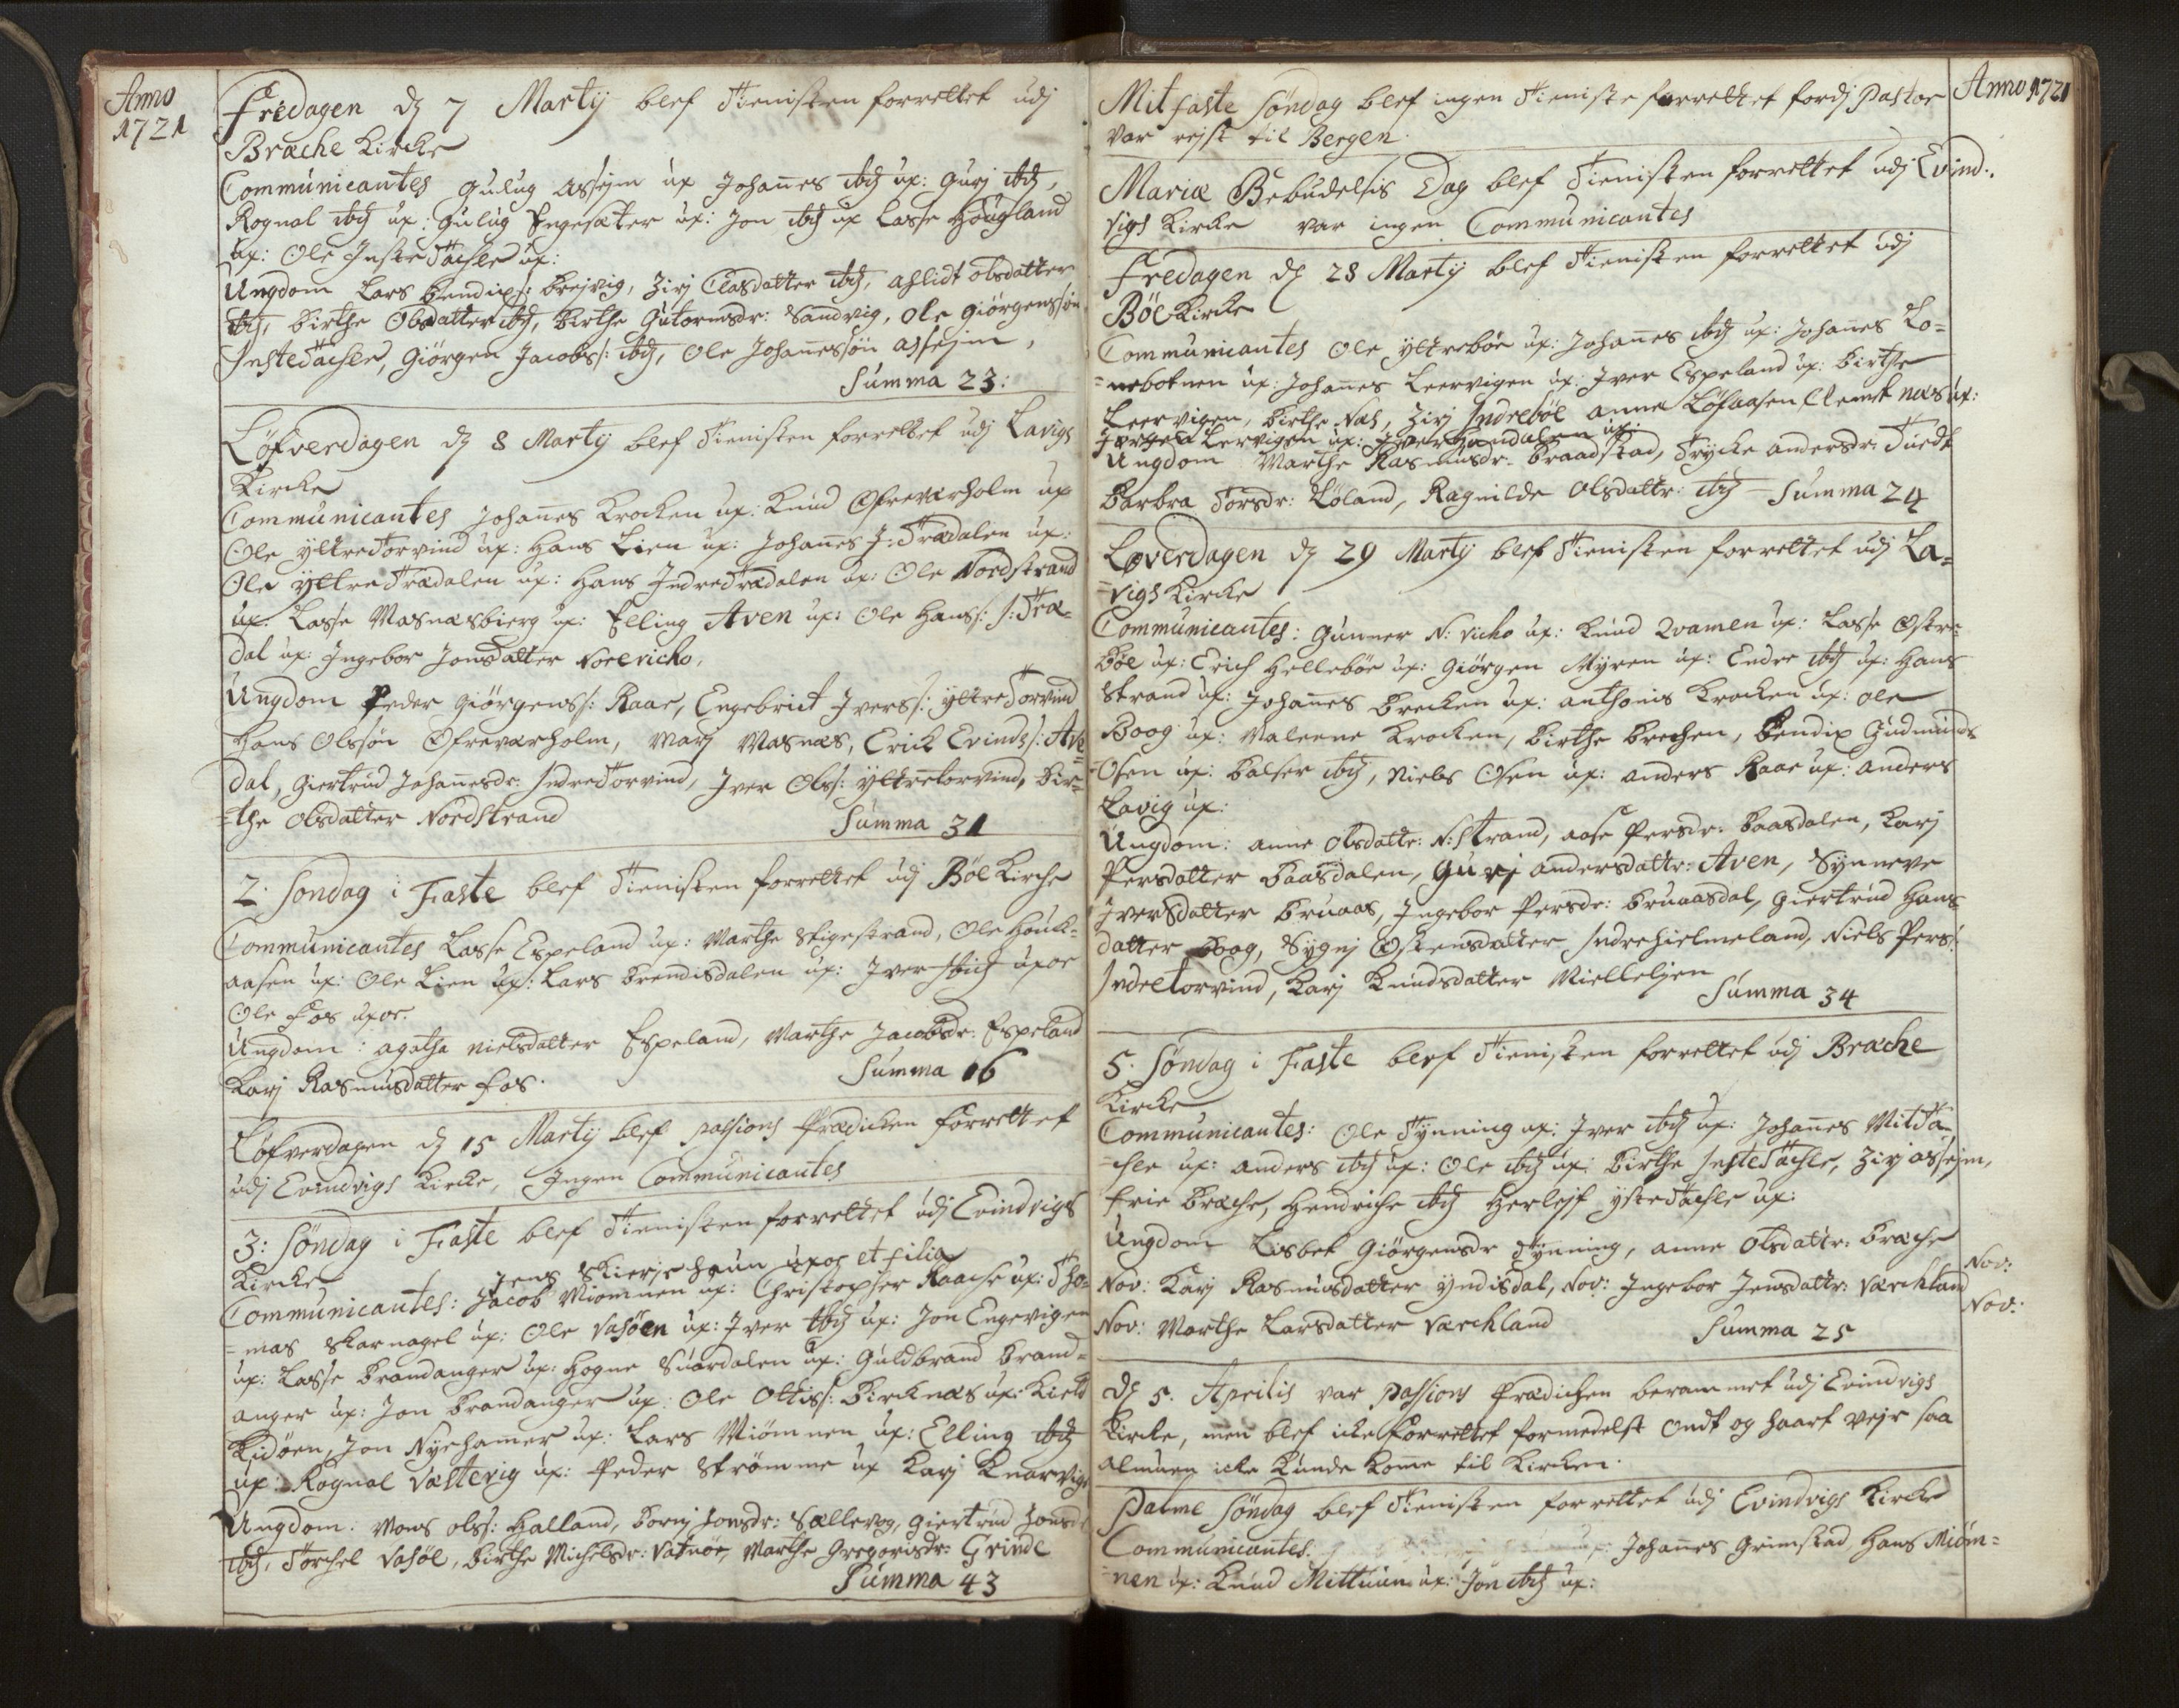 Anno
1721
Fredagen d. 7 Martij blef Tienisten forrettet udj
Bræche Kircke
Communicantes Gulug Assejm ux Johañes ibd ux: Gurj ibd,
Rognal ibd ux: Gulug Engesæter ux: Jon ibd ux Lasse Hougland
ux: Ole InsteTachle ux:
Ungdom Lars Bendixs: Brejvig, Zirj Clasdatter ibd, Assidt Olsdatter
ibd, Birthe Olsdatter ibd, Birthe Gutormsdr: Sandvig, Ole Giörgenssön
InsteTachle, Giörgen Jacobs: ibd, Ole Johañessön Assejm,
Summa 23:
Löfverdagen d. 8 Martij blef Tienisten forrettet udj Lavigs
Kircke
Communicantes Johañes Krocken ux: Knud Öfreværholm ux
Ole YttreTorvind ux: Hans Lien ux: Johañes J: Trædalen ux:
Ole YttreTrædalen ux: Hans IndreTrædalen ux: Ole Nordstrand
ux. Lasse Masnæsbierg ux: Elling Aven ux: Ole Hanss: J: Træ-
dal ux: Ingebor Jonsdatter Norevicho,
Ungdom Peder Giörgenss: Raae, Engebrict Iverss: YttreTorvind
Hans Olssön Öfreværholm, Marj Masnæs, Erick Evinds: Ave
dal, Giertrud Johañesdr: IndreTorvind, Iver Ols: Yttretorvind, Bir-
=the Olsdatter Nordstrand
Summa 31
2. Sondag i Faste blef Tienisten forrettet udj Böe Kirche
Communicantes Lasse Espeland ux: Marthe Stigestrand, Ole Houk-
aasen ux: Ole Lien ux: Lars Brendisdalen ux: Iver ibid uxor
Ole Fos uxor.
Ungdom: Agatha Nielsdatter Espeland, Marthe Jacobsdr: Espeland
Karj Rasmusdatter Fos.
Summa 16
Löfverdagen d. 15 Martij blef passions Prædicken forrettet
udj Evindvigs Kircke, Ingen Communicantes
3: Söndag i Faste blef Tienisten forrettet udj Evindvigs
Kircke
Jens Skierjehaun uxor et filia
Communicantes: Jacob Miomnen ux: Christopher Raache ux: Tho-
=mas Skarnagel ux: Ole Vasöen ux: Iver ibd ux: Jon Engevigen
ux: Lasse Brandanger ux: Hogne Suardalen ux: Guldbrand Brand-
anger ux: Jon Brandanger ux: Ole Ottiss: Bircknæs ux: Kield
Kidöen, Jon Nyehamer ux: Lars Miömnen ux: Elling ibd
ux: Rognal Vastevig ux: Peder Strömme ux Karj Knarvig
Ungdom. Mons Olss: Halland, Borni Jonsdr: Sællevog, Giertrud Jonsd
ibd, Torchel Vasöe, Birthe Michelsdr: Vatnöe, Marthe Gregorisdr: Grinde
Summa 43
Anno 1721
Mitfaste Söndag blef ingen Tieniste forrettet fordj Pastor
var rejst til Bergen.
Mariæ Bebudelsis Dag blef Tienisten forrettet udj Evind-
vigs Kircke var ingen Communicantes
Fredagen d. 28 Martij blef Tienisten forrettet udj
Böe Kircke
Communicantes Ole Yttreböe ux: Johañes ibd ux: Johañes Lo=
=nebotnen ux: Johañes Leervigen ux: Iver Espeland ux: Birthe
Leervigen, Birthe Næs, Zirj Indreböe Anne Löfaasen Clemet næs ux:
Jörgen Lervigen ux: Iver Handalen ux:
Ungdom Marthe Rasmusdr: Braadstad, Trycke Andersdr: Tuedt
Barbra Torsdr: Löland, Ragnilde Olsdattr: ibd Summa 24
Löverdagen d. 29 Martij blef Tienisten forrettet udj La-
=vigs Kircke
Communicantes: Gunner N: Vicho ux: Knud Qvamen ux: Lasse Östre
böe ux: Erich Helleböe ux: Giörgen Myren ux: Endre ibd ux: Hans
Strand ux: Johañes Brecken ux: Anthonis Krocken ux: Ole
Boog ux: Malene Krocken, Birthe Brechen, Bendix Gudmunds
Osen ux: Balser ibd, Niels Osen ux: Anders Raae ux: Anders
Lavig ux:
Ungdom: Anne Olsdattr: N: Strand, Aase Persdr: Baasdalen, Karj
Persdatter Baasdalen, Gurj Andersdattr: Aven, Synneve
Iversdatter Bruaas, Ingebor Persdr: Bruaasdal, Giertrud Hans
datter Boog, Sygnj Östensdatter Indrehielmeland, Niels Perss:
Indretorvind, Karj Knudsdatter Miellelien
Summa 34
5. Söndag i Faste blef Tienisten forrettet udj Bræche
Kircke
Communicantes: Ole Tynning ux: Iver ibd ux: Johañes MitTa-
=chle ux: Anders ibd ux: Ole ibd ux: Birthe InsteTachle, Zirj Assejm,
Erie Bræche, Hendriche ibd Herlejf YsteTachle ux:
Ungdom Lisbet Giörgensdr Tynning, Anne Olsdattr: Bræche
Nov:
Nov: Karj Rasmusdatter Yndisdal, Nov: Ingebor Jensdattr: Værchland
Nov:
Nov: Marthe Larsdatter Værchland
Summa 25
D. 5. Aprilis var passions Prædichen berammet udj Evindvigs
Kircke, men blef icke forrettet formedelst Ondt og haart vejr saa
almuen icke kunde komme til Kircken.
Palme Söndag blef Tienisten forrettet udj Evindvigs Kircke
Communicantes. Johañes Grimstad, Hans Miöm=
=nen ux: Knud Mittuun ux: Jon ibd ux: